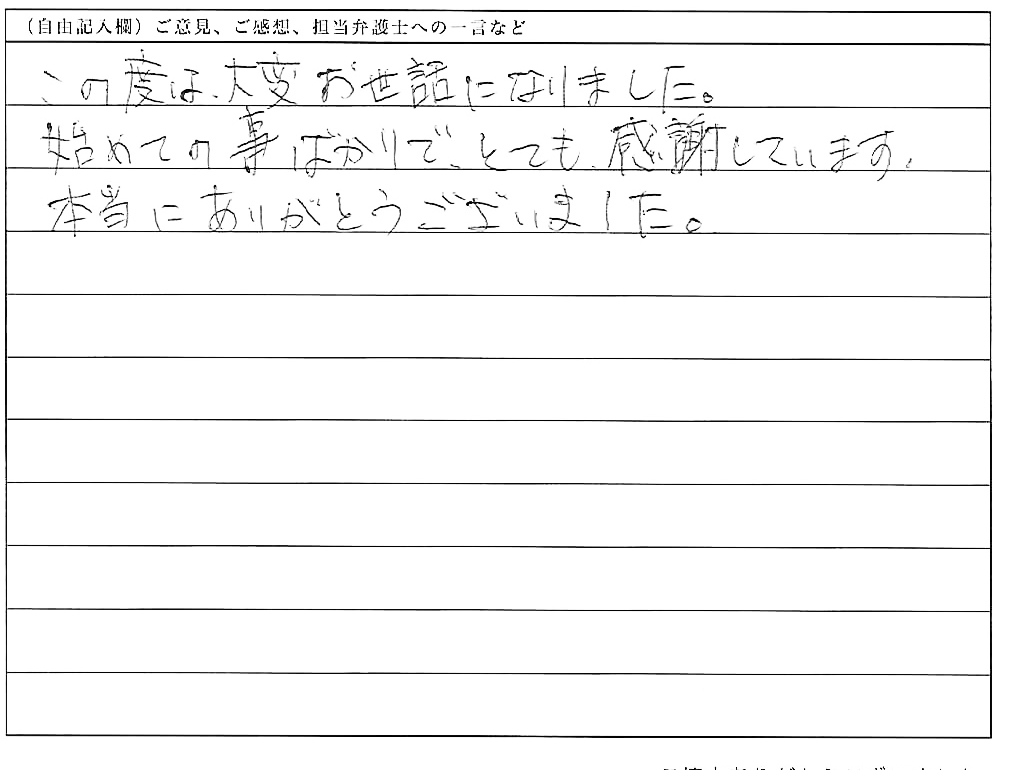 （自由記入欄）ご意見、ご感想、担当弁護士への一言など
この度は、大変お世話になりました。
始めての事ばかりで、とても、感謝しています。
本当にありがとうございました。